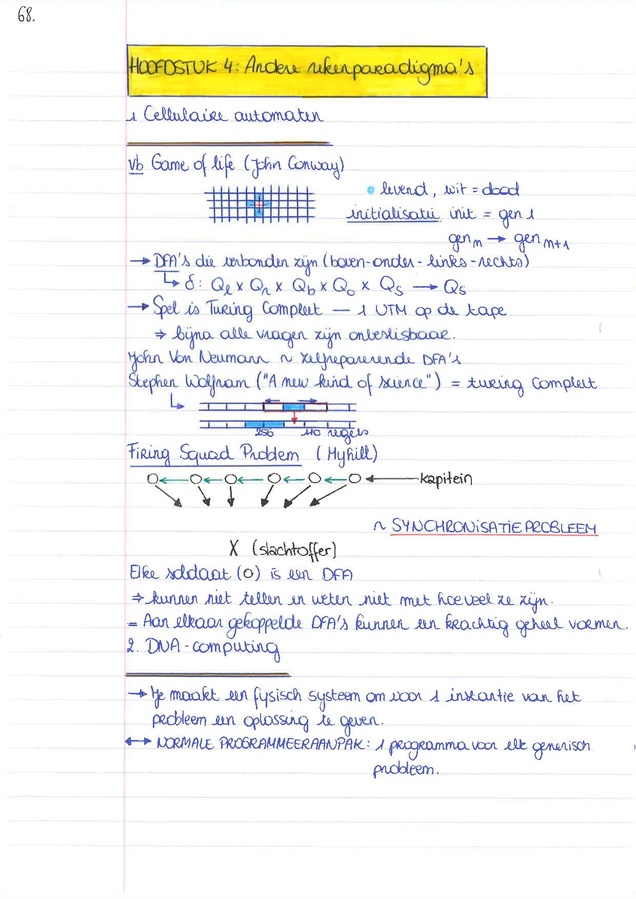 68.
HOOFDSTUK 4: Andere rekenparadigma's
1 Cellulaire automaten
vb Game of life (John Conway)
levend, wit = dood
initialisatie init = gen 1
gen m → gen m+1
→ DFA's die verbonden zijn (boven-onder-links-rechts)
↳ δ: Qe x Qr x Qb x Qo x Qs → Qs
→ Spel is Turing Compleet — 1 UTM op de tape
⇒ bijna alle vragen zijn onbeslisbaar.
John Von Neumann ~ zelfreparerende DFA's
Stephen Wolfram ("A new kind of science") = turing compleet
256 110 regels
Firing Squad Problem (Myhill)
kapitein
~ SYNCHRONISATIEPROBLEEM
X (slachtoffer)
Elke soldaat (O) is een DFA
⇒ kunnen niet tellen en weten niet met hoeveel ze zijn.
= Aan elkaar gekoppelde DFA's kunnen een krachtig geheel vormen.
2. DNA-computing
→ Je maakt een fysisch systeem om voor 1 instantie van het
probleem een oplossing te geven.
↔ NORMALE PROGRAMMEERAANPAK: 1 programma voor elk generisch
probleem.